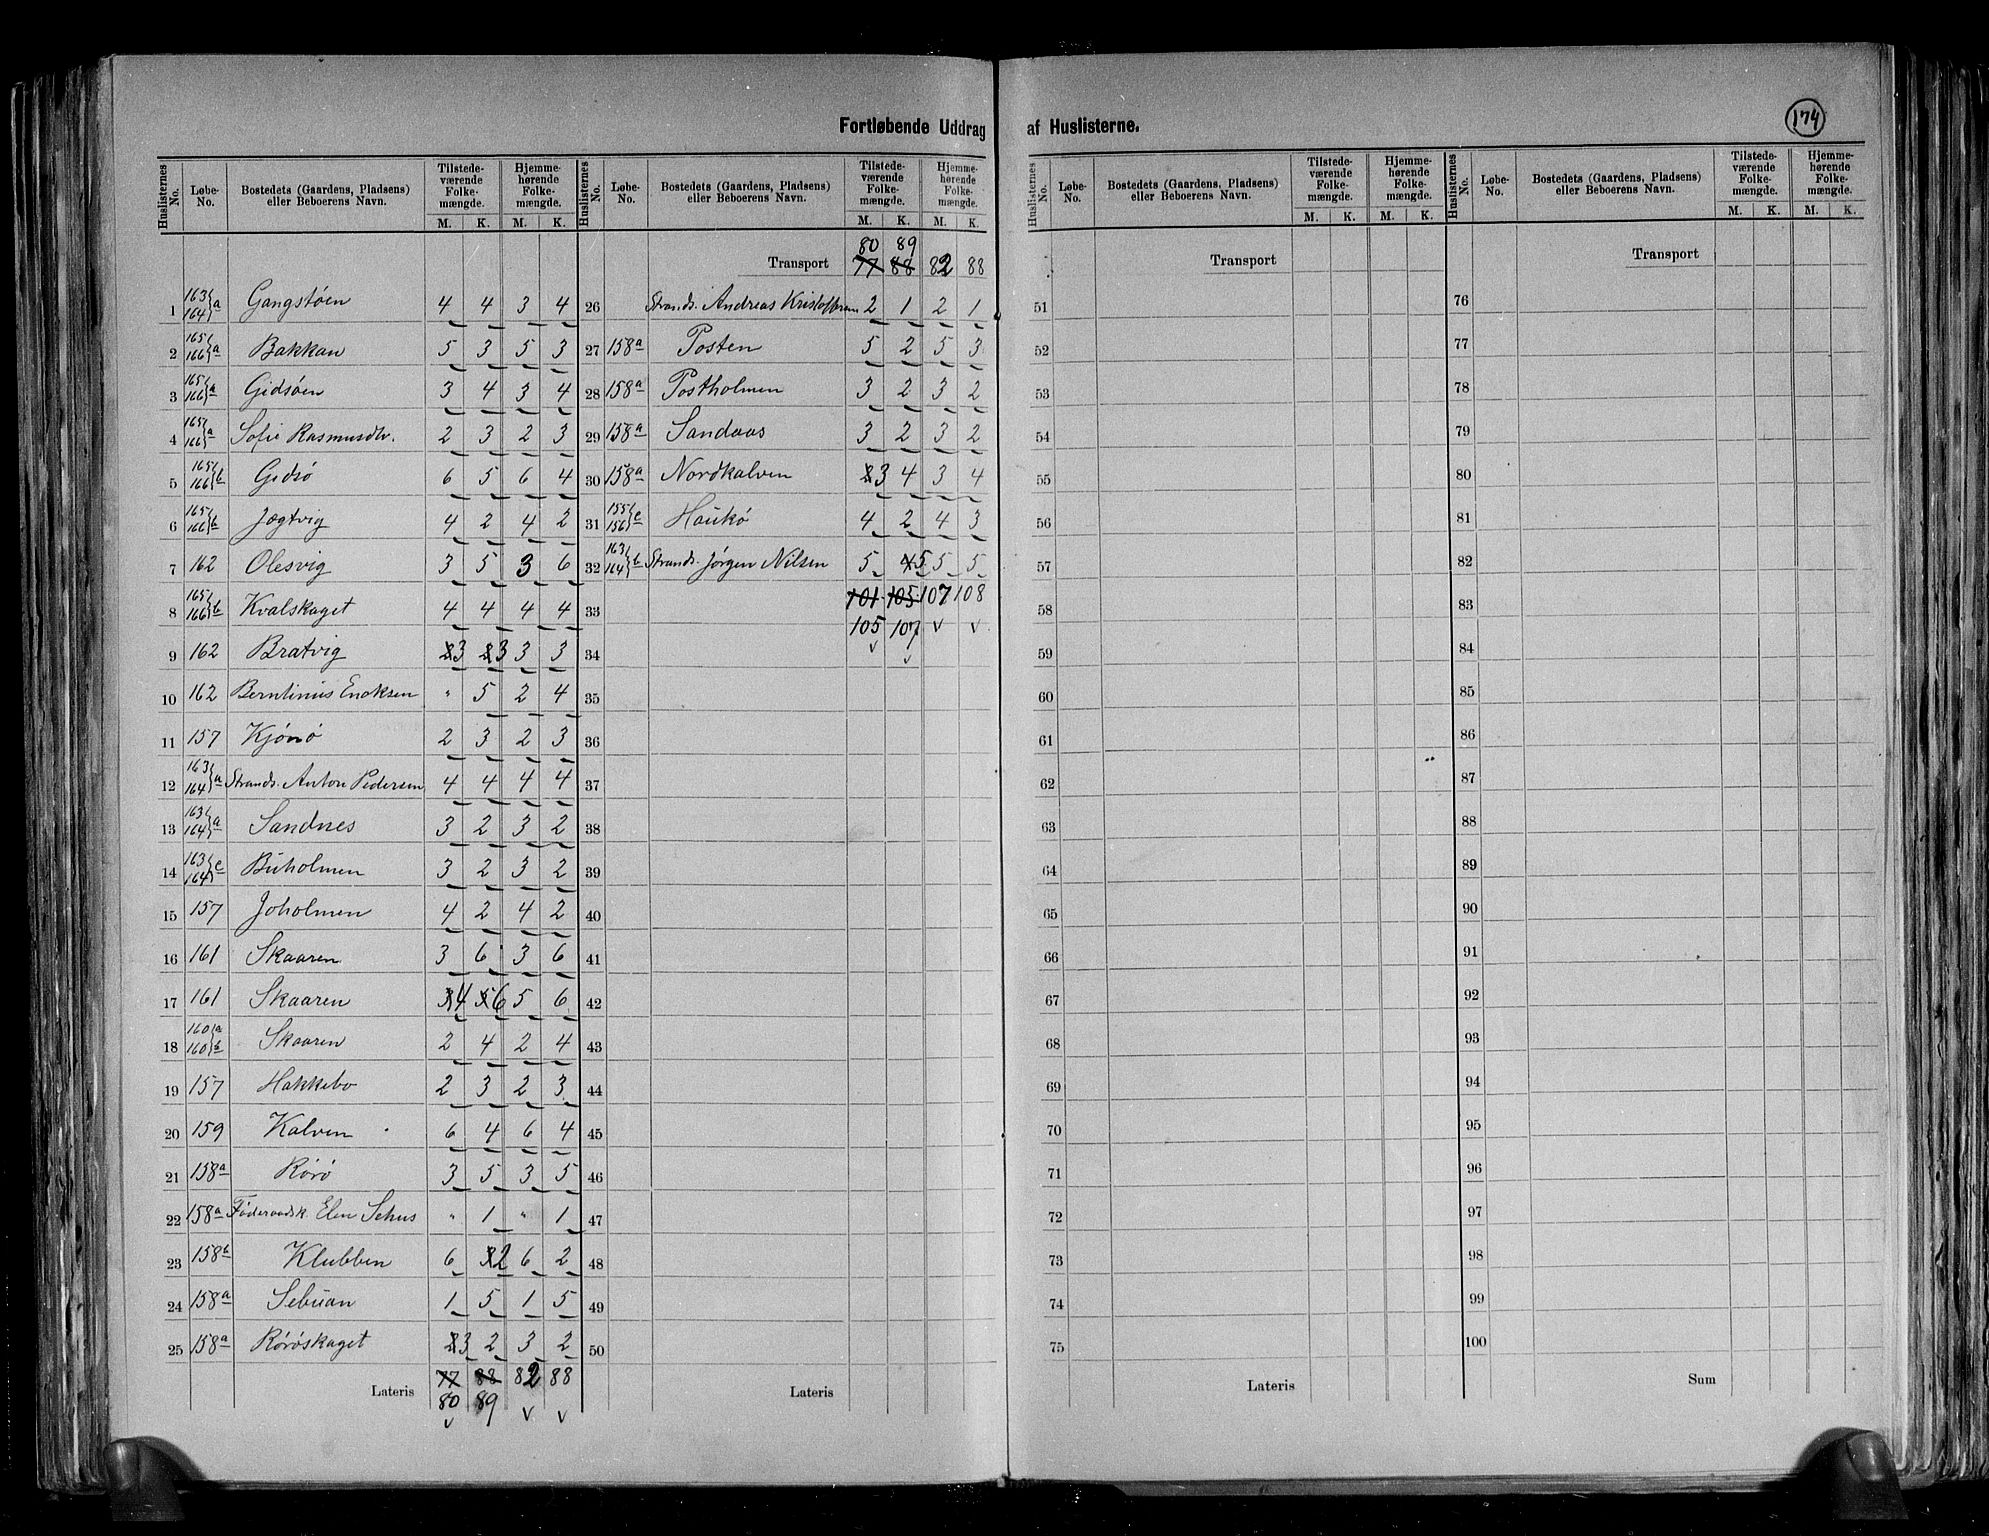 Fortløbende Uddrag af Huslisterne.
174
Huslisternes No. Løbe-No. Bostedets (Gaardens, Pladsens) eller Beboerens Navn. Tilstedeværende Folkemængde. M. K. Hjemmehørende Folkemængde. M. K.
1 163/164 a Gangstøen 4 4 3 4
2 165/166 a Bakkan 5 3 5 3
3 165/166 a Gidsøen 3 4 3 4
4 165/166 a Sofie Rasmusdtr. 2 3 2 3
5 165/166 b Gidsø 6 5 6 4
6 165/166 b Jægtvig 4 2 4 2
7 162 Olesvig 3 5 3 6
8 165/166 b Kvalskaget 4 4 4 4
9 162 Bratvig 2 3 2 3 3 3
10 162 Berntinius Enoksen " 5 2 4
11 157 Kjønø 2 3 2 3
12 163/164 a Strands. Anton Pedersen 4 4 4 4
13 163/164 a Sandnes 3 2 3 2
14 163/164 c Buholmen 3 2 3 2
15 157 Joholmen 4 2 4 2
16 161 Skaaren 3 6 3 6
17 161 Skaaren 3 4 5 6 5 6
18 160 a 160 b Skaaren 2 4 2 4
19 157 Hakkebo 2 3 2 3
20 159 Kalven 6 4 6 4
21 158 a Rørø 3 5 3 5
22 158 a Føderaadsk. Elen Sehus " 1 " 1
23 158 b Klubben 6 3 2 6 2
24 158 a Sebuan 1 5 1 5
25 158 a Rørøskaget 2 3 2 3 2
Lateris 77 88 82 88
80 89
Huslisternes No. Løbe-No. Bostedets (Gaardens, Pladsens) eller Beboerens Navn. Tilstedeværende Folkemængde. M. K. Hjemmehørende Folkemængde. M. K.
80 89
Transport 77 88 82 88
26 Strands. Andreas Kristoffersen 2 1 2 1
27 158 a Posten 5 2 5 3
28 158 a Postholmen 3 2 3 2
29 158 a Sandaas 3 2 3 2
30 158 a Nordkalven 2 3 4 3 4
31 155/156 c Haukø 4 2 4 3
32 163/164 b Strands. Jørgen Nilsen 5 4 5 5 5
33 101 105 107 108
105 107
34
35
36
37
38
39
40
41
42
43
44
45
46
47
48
49
50
Lateris
Huslisternes No. Løbe-No. Bostedets (Gaardens, Pladsens) eller Beboerens Navn. Tilstedeværende Folkemængde. M. K. Hjemmehørende Folkemængde. M. K.
Transport
51
52
53
54
55
56
57
58
59
60
61
62
63
64
65
66
67
68
69
70
71
72
73
74
75
Lateris
Huslisternes No. Løbe-No. Bostedets (Gaardens, Pladsens) eller Beboerens Navn. Tilstedeværende Folkemængde. M. K. Hjemmehørende Folkemængde. M. K.
Transport
76
77
78
79
80
81
82
83
84
85
86
87
88
89
90
91
92
93
94
95
96
97
98
99
100
Sum